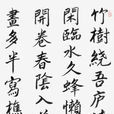 竹樹繞吾庐
閑臨水久蜂懶
開卷春陰入
畫多半寫樵